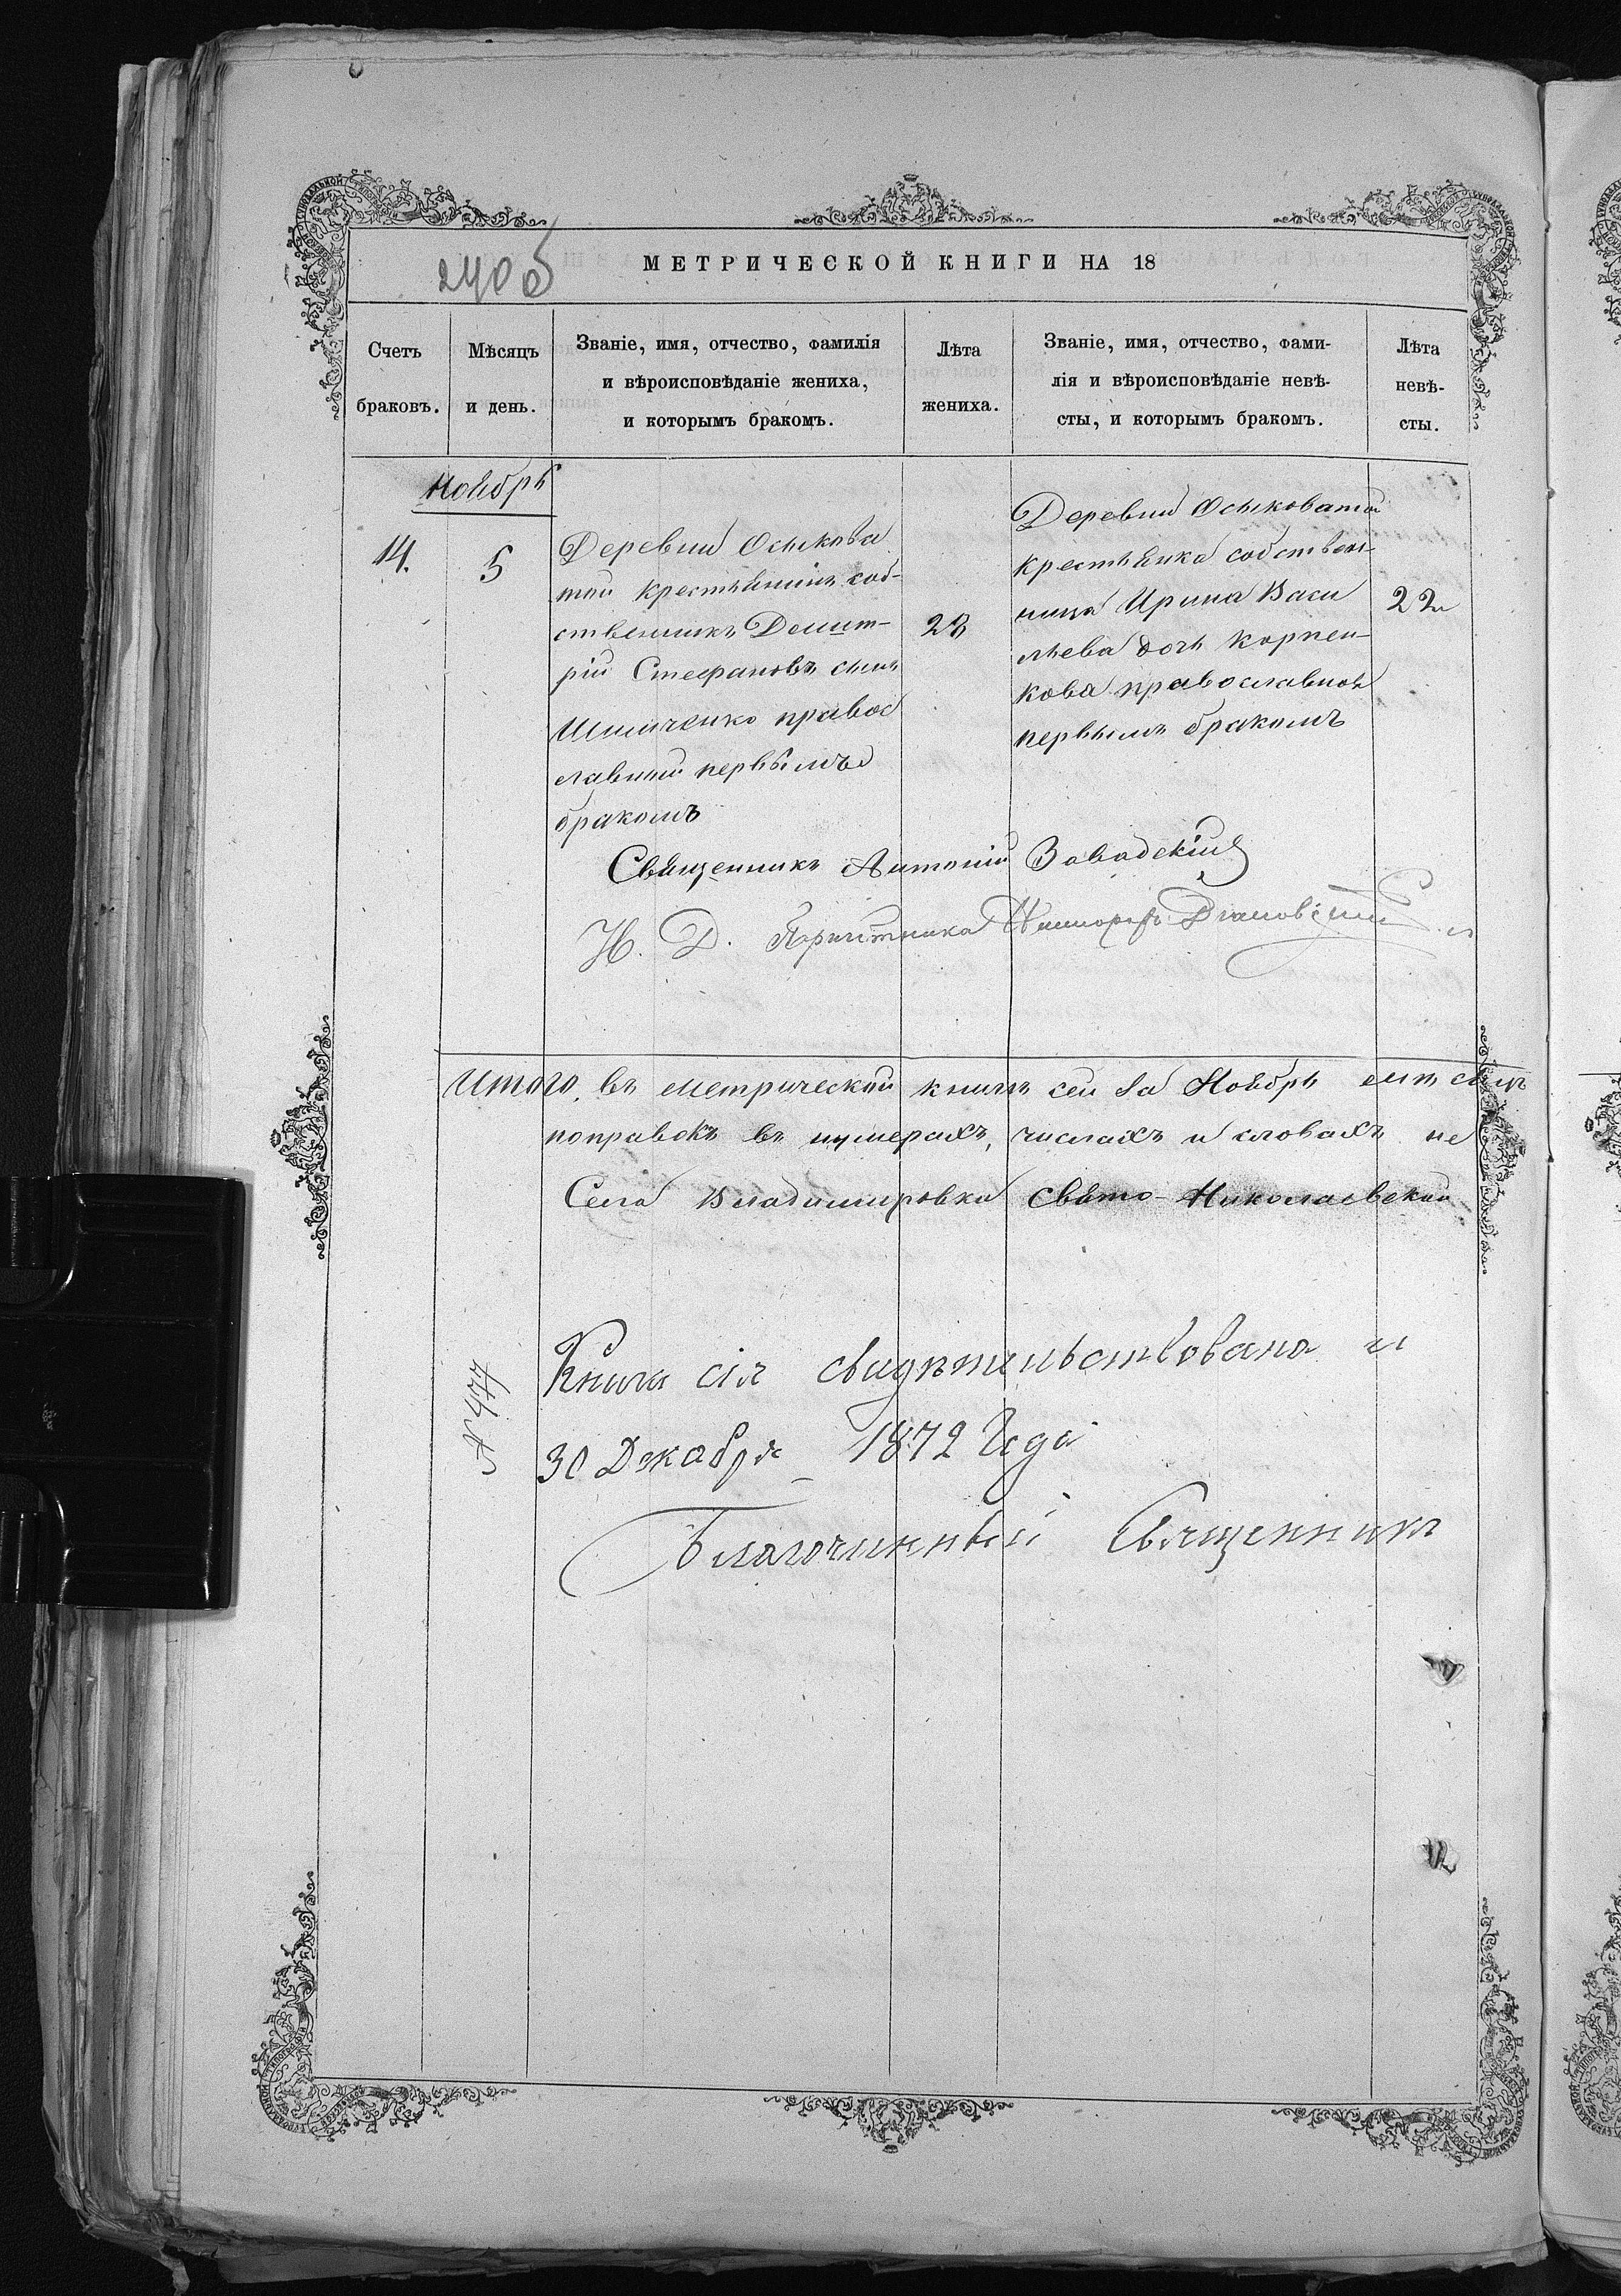 240б
МЕТРИЧЕСКОЙ КНИГИ НА 18
Счетъ браковъ.
Мѣсяцъ и день.
Званіе, имя, отчество, фамилія
и вѣроисповѣданіе жениха,
и которымъ бракомъ.
Лѣта жениха.
Званіе, имя, отчество, фами-
лія и вѣроисповѣданіе невѣ-
сты, и которымъ бракомъ.
Лѣта
невѣ-
сты.
Ноябрь
14.
5
Деревни Осикова
той крестьянинъ соб-
ственникъ Димит-
рій Стефановъ сынъ
Шимченко правос
лавный первымъ
бракомъ
23
Деревни Осиковатой
крестьянка собствен-
ница Ирина Васи
льева дочь Корпен-
кова православной
первымъ бракомъ
22
Священникъ Антоній Завадскій
И. Д. Причетника
Итого въ метрической книгѣ сей за Ноябрь
поправокъ въ нумерахъ, числахъ и словахъ не
Села Владимировки Свято-Николаевской
№ 477
Книга сія свидѣтельствована и
30 Декабря 1872 Года
Благочинный Священникъ